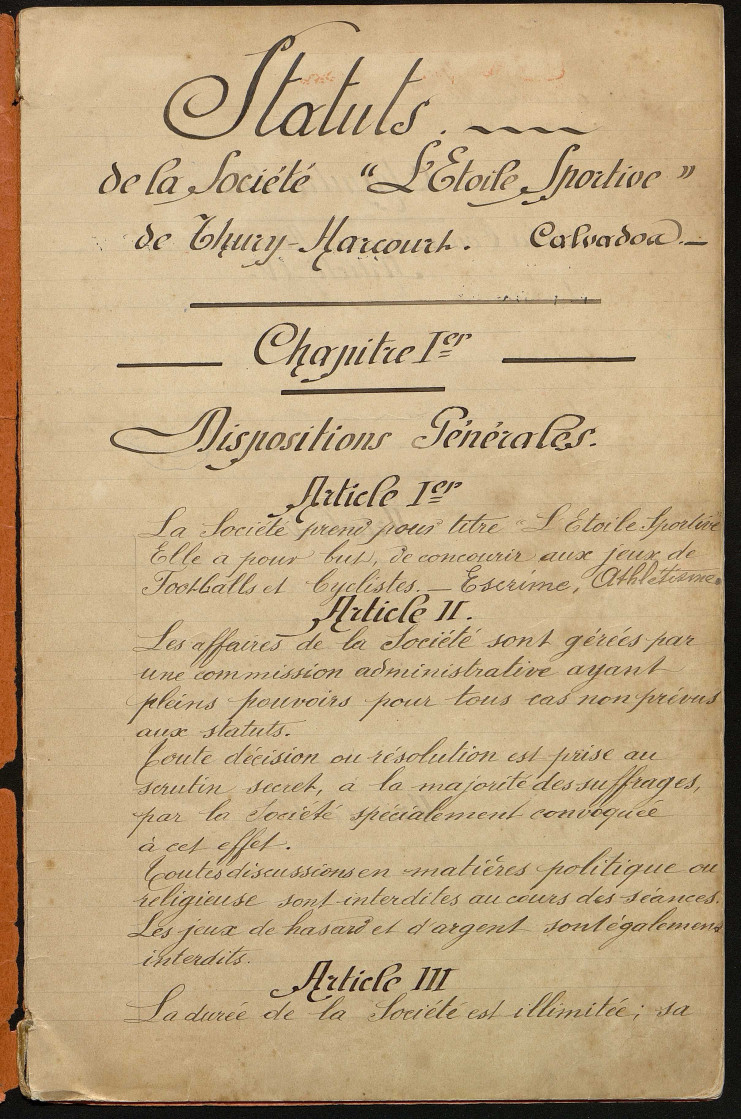 Statuts.
de la Société "L'Etoile Sportive"
de Thury-Harcourt. Calvados.
Chapitre Ier
Dispositions Générales.
Article Ier
La Société prend pour titre "L'Etoile Sportive
Elle a pour but, de concourir aux jeux de
Footballs et Cyclistes. — Escrime, Athlétisme.
Article II.
Les affaires de la Société sont gérées par
une commission administrative ayant
pleins pouvoirs pour tous cas non prévus
aux statuts.
Toute décision ou résolution est prise au
scrutin secret, à la majorité des suffrages,
par la Société spécialement convoquée
à cet effet.
Toutes discussions en matières politique ou
religieuse sont interdites au cours des séances.
Les jeux de hasard et d'argent sont également
interdits.
Article III
La durée de la Société est illimitée; sa